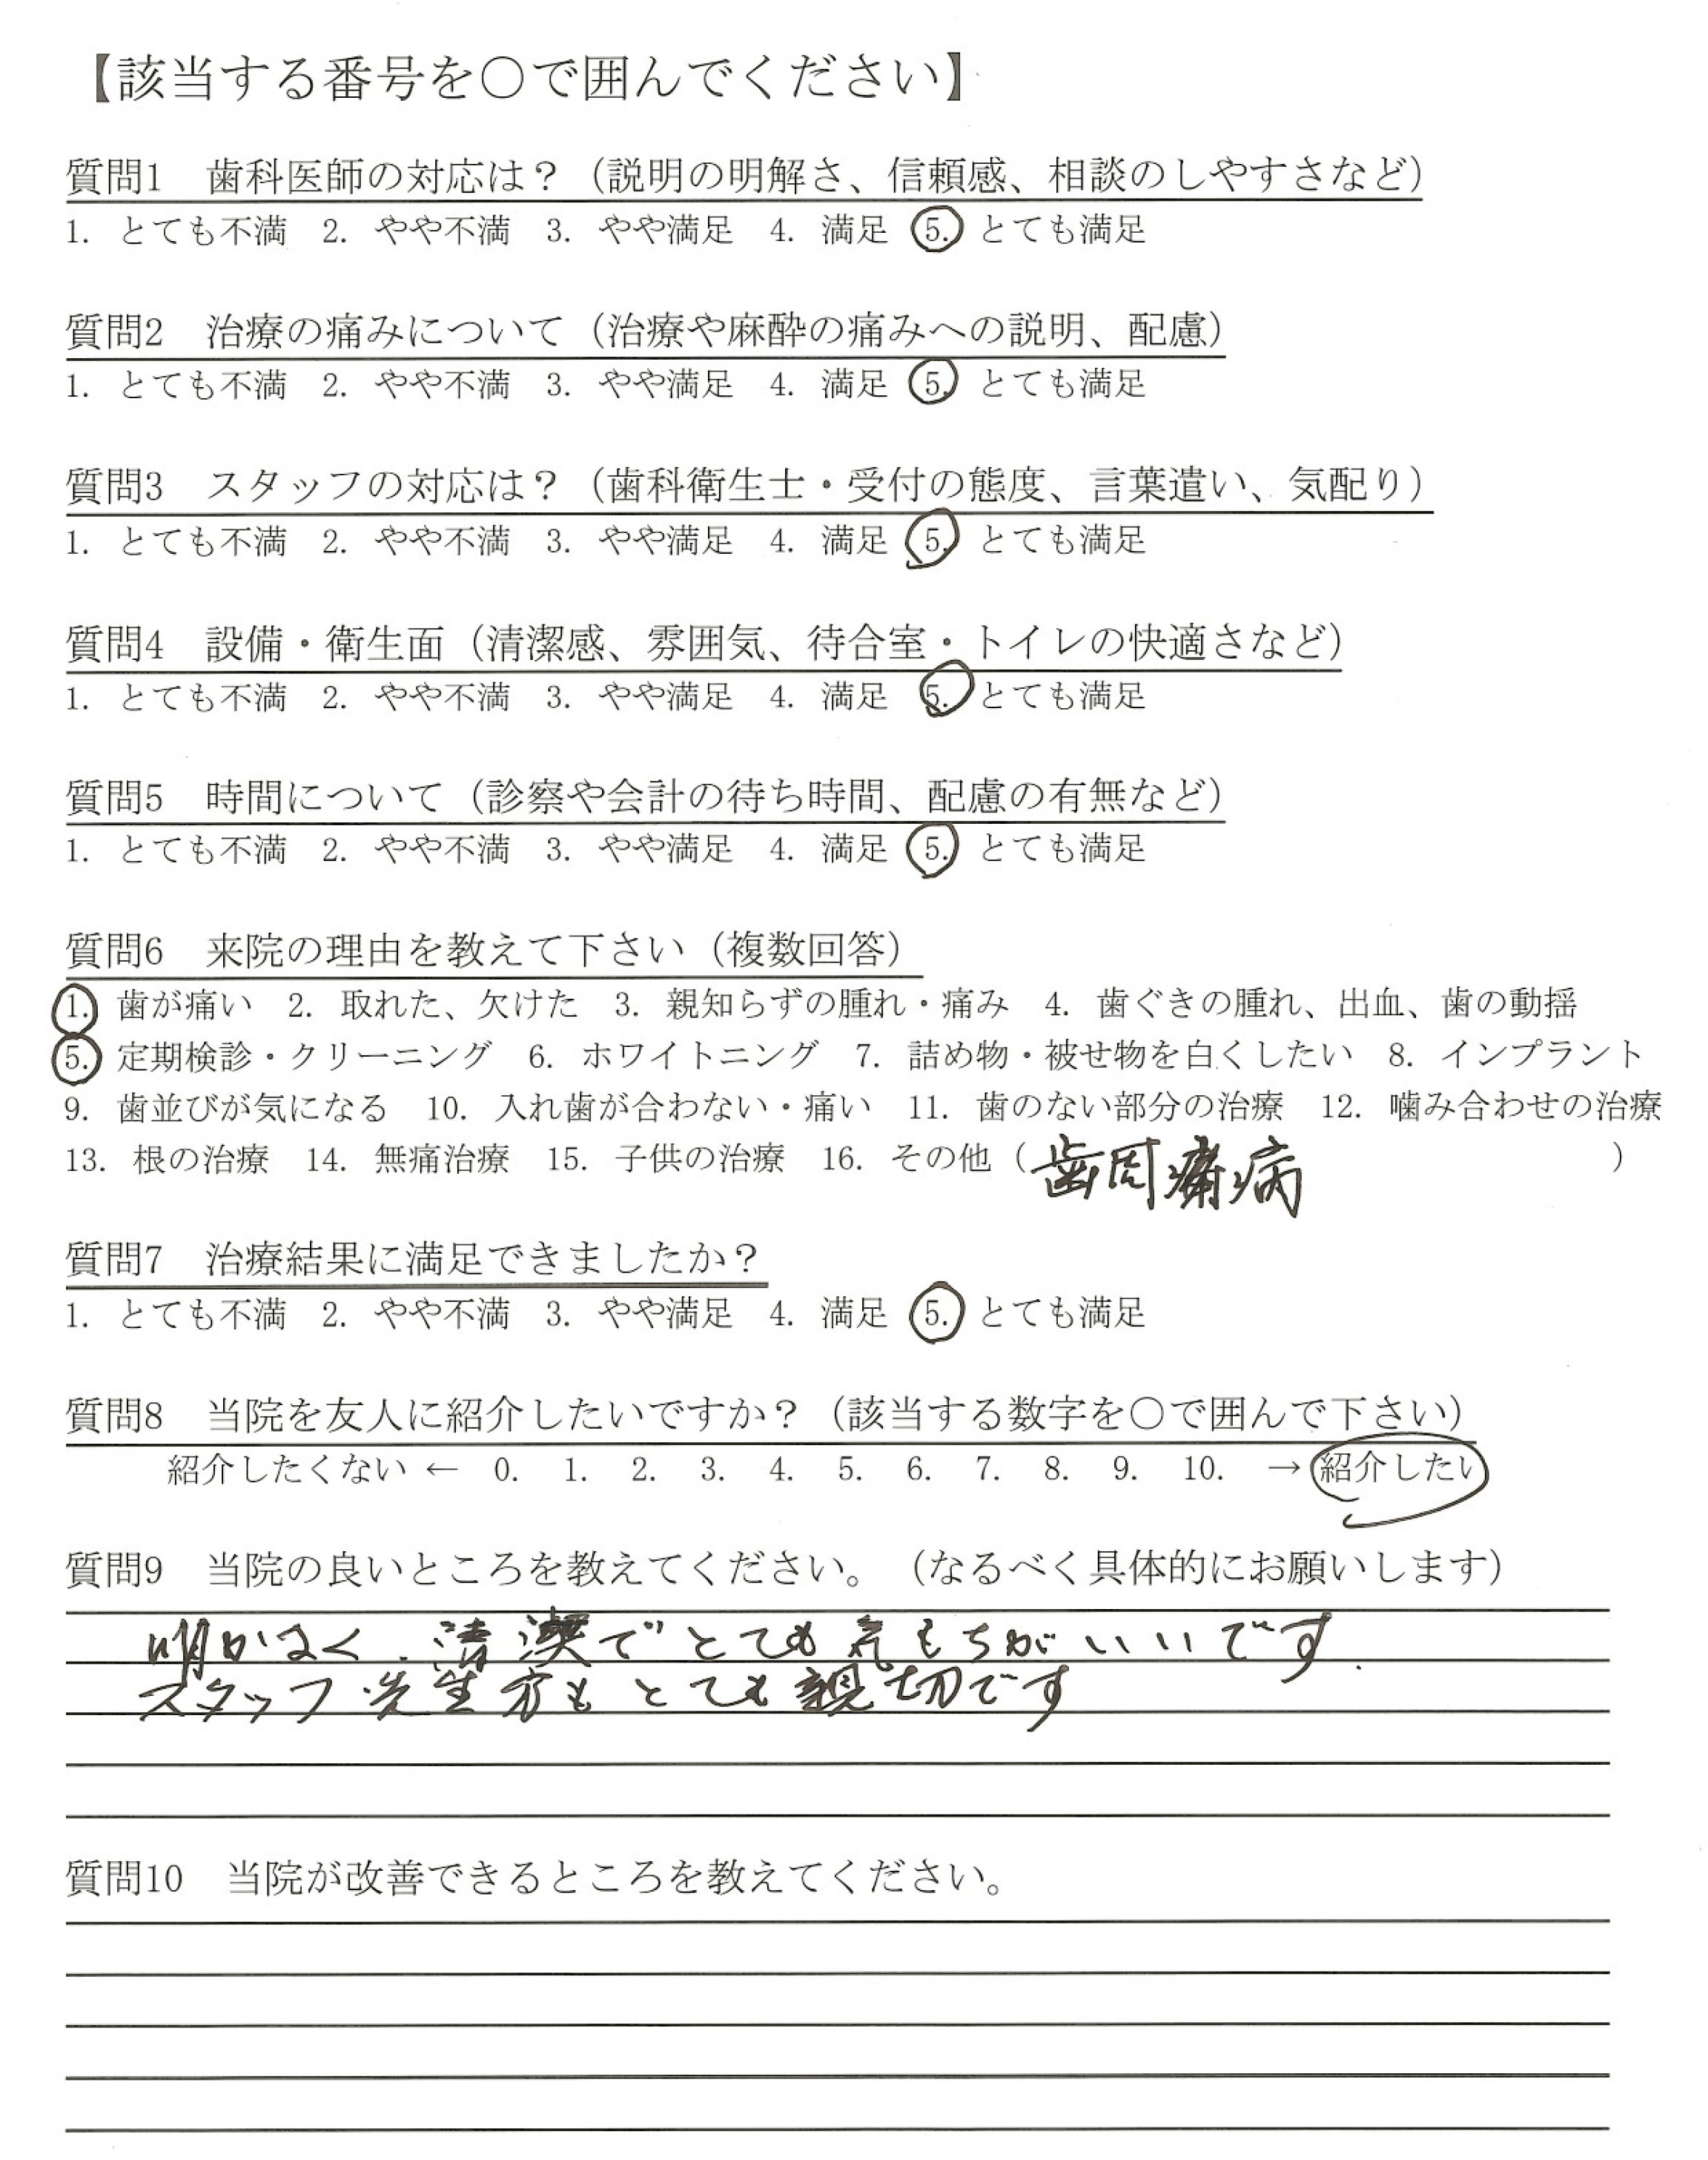 【該当する番号を○で囲んでください】
質問1　歯科医師の対応は？（説明の明解さ、信頼感、相談のしやすさなど）
1. とても不満　2. やや不満　3. やや満足　4. 満足　5. とても満足
質問2　治療の痛みについて（治療や麻酔の痛みへの説明、配慮）
1. とても不満　2. やや不満　3. やや満足　4. 満足　5. とても満足
質問3　スタッフの対応は？（歯科衛生士・受付の態度、言葉遣い、気配り）
1. とても不満　2. やや不満　3. やや満足　4. 満足　5. とても満足
質問4　設備・衛生面（清潔感、雰囲気、待合室・トイレの快適さなど）
1. とても不満　2. やや不満　3. やや満足　4. 満足　5. とても満足
質問5　時間について（診察や会計の待ち時間、配慮の有無など）
1. とても不満　2. やや不満　3. やや満足　4. 満足　5. とても満足
質問6　来院の理由を教えて下さい（複数回答）
1. 歯が痛い　2. 取れた、欠けた　3. 親知らずの腫れ・痛み　4. 歯ぐきの腫れ、出血、歯の動揺
5. 定期検診・クリーニング　6. ホワイトニング　7. 詰め物・被せ物を白くしたい　8. インプラント
9. 歯並びが気になる　10. 入れ歯が合わない・痛い　11. 歯のない部分の治療　12. 噛み合わせの治療
13. 根の治療　14. 無痛治療　15. 子供の治療　16. その他（歯周病）
質問7　治療結果に満足できましたか？
1. とても不満　2. やや不満　3. やや満足　4. 満足　5. とても満足
質問8　当院を友人に紹介したいですか？（該当する数字を○で囲んで下さい）
紹介したくない ← 0. 1. 2. 3. 4. 5. 6. 7. 8. 9. 10. → 紹介したい
質問9　当院の良いところを教えてください。（なるべく具体的にお願いします）
明かるく、清潔でとても気もちがいいです.
スタッフ 先生方もとても親切です
質問10　当院が改善できるところを教えてください。